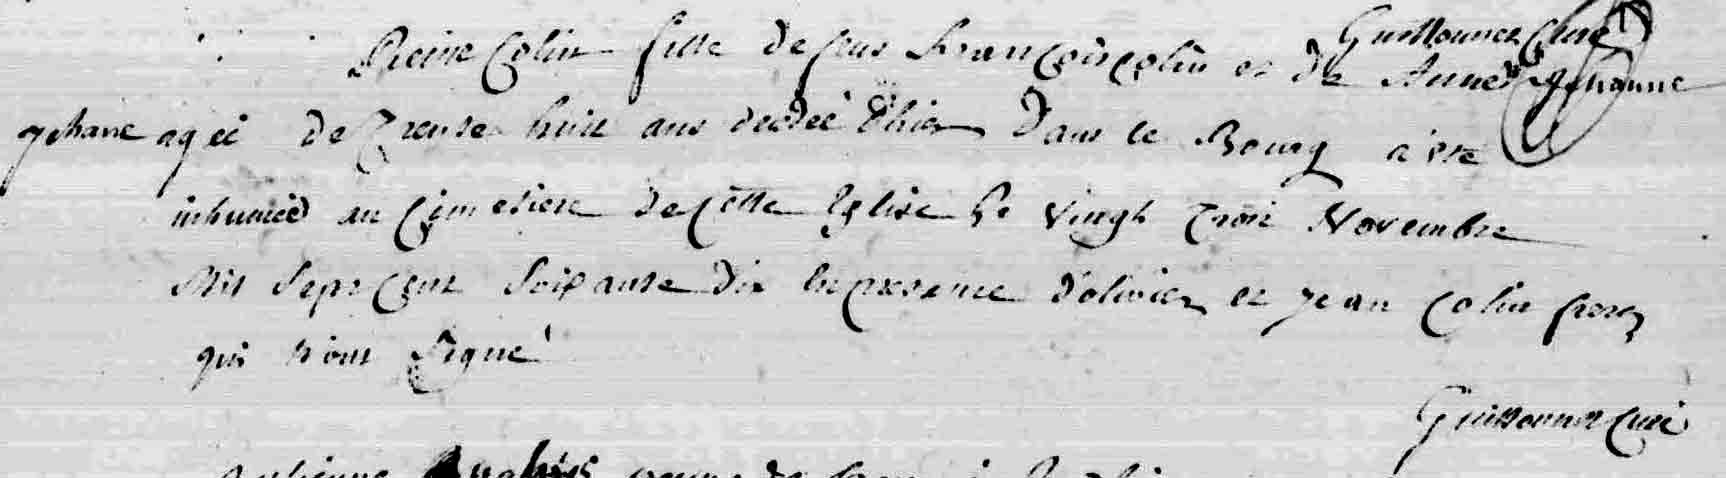 Guillounez Curé
Reine Colin fille de feus François Colin et de Anne Jehanne
Jehane agée de trente huit ans decedée d'hier dans le Bourg a été
inhumée au Cimetiere de cette Eglise le vingt trois Novembre
Mil Sept Cent Soixante dix en presence d'olivier et jean Colin freres
qui n'ont Signé
Guillounez Curé
veuve de